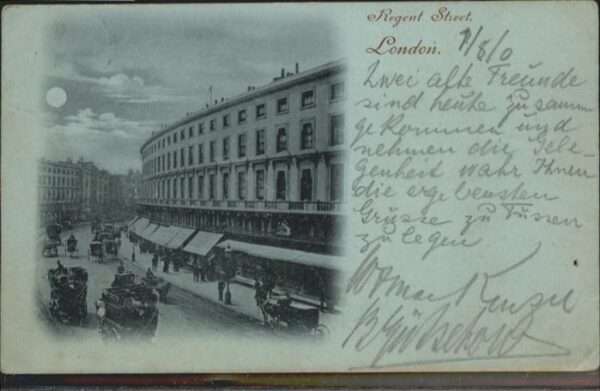 Regent Street,
London.
7/8/0
Zwei alte Freunde
sind heute zusamm
gekommen und
nehmen die Gele-
genheit wahr Ihnen
die ergebensten
Grüsse zu Füssen
zu legen